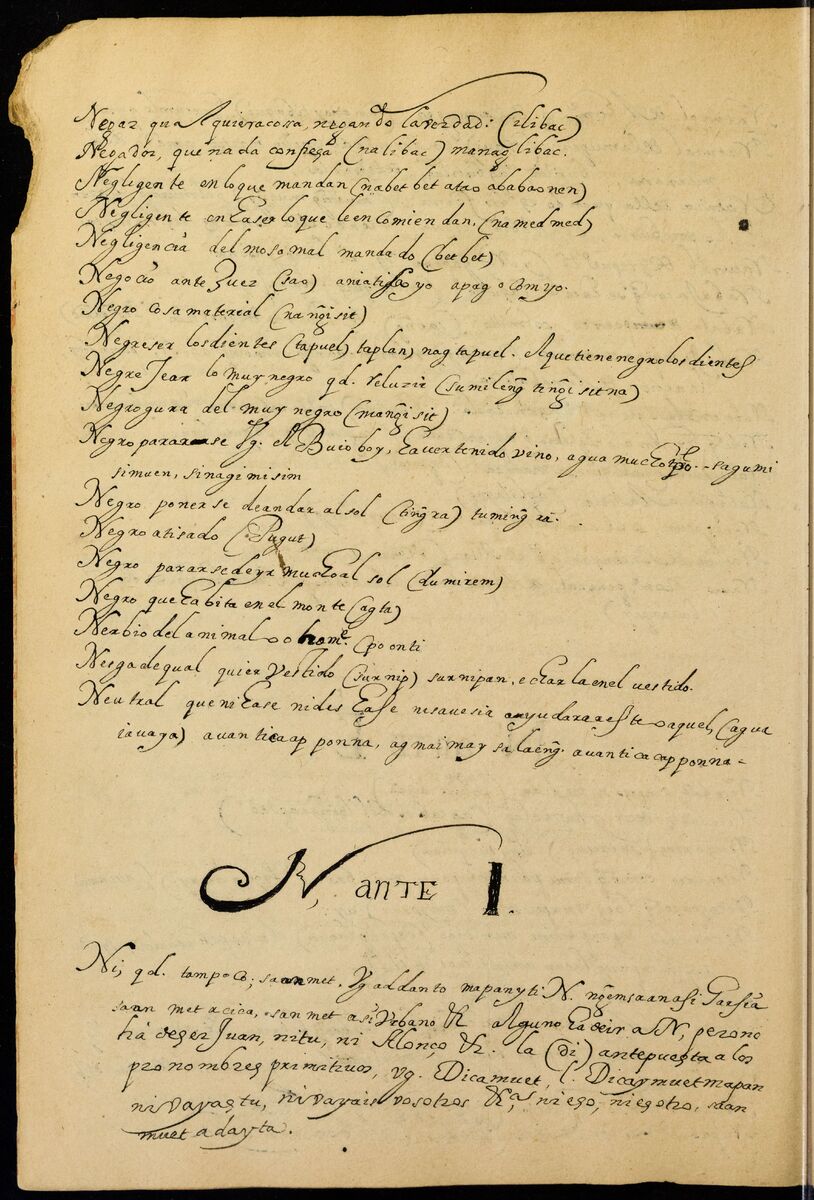 Negar qualquiera cosa, negando la berdad: (ilibac)
Negador, que nada confiesa (nalibac) managlibac.
Negligente en lo que mandan (nabetbet a tao ababaonen)
Negligente en haser lo que le encomiendan, (namedmed)
Negligencia del moso mal mandado (betbet)
Negocio ante Juez (sao)
Negro cosa material (nangisit)
Negreser los dientes (tapuel) taplan, nagtapuel. A que tiene negro los dientes
Negrejear lo muy negro qd. reluzir (sumileng ti ngisitna)
Negregura del muy negro (mangisit)
Negro pararse Vg. el Buio boy, haver tenido vino, agua mucho tpo. - sagumi
simuen, sinagimisim
Negro ponerse de andar al sol (tingra) tumingra.
Negro atisado (Pugut)
Negro pararse de yr mucho al sol (dumirem)
Negro que habita en el monte (agta)
Nerbio del animal o home. (ponti
Nesga de qual quier vestido (surnip) surnipan, echarla en el vestido.
Neutral que ni hase ni deshase ni save si a ayudara a este o aquel, (agua
iavaya) avan ti caapponna, agmaimaysa laeng. avan ti cacapponna -
N, ANTE I.
Ni, qd. tampoco; saan met. Vg addanto mapan yti N. ngem saan a si Garsia
saan met a cica, saan met a si Urbano &c. Alguno ha de ir a N, pero no
ha de ser Juan, ni tu, ni Alonço &c. la (di) antepuesta a los
pronombres primitivos, vg. Dicamuet, l. Dicaymuet mapan
ni vayas tu, ni vayais vosotros &as ni eso, ni esotro, saan
muet a dayta.